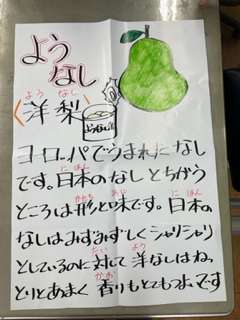 よう
なし
よう なし
〈洋梨〉
ヨーロッパでうまれたなし
に ほん
です。日本のなしとちがう
かたち あじ に ほん
ところは形と味です。日本の
なしはみずみずしくシャリシャリ
たい よう
としているのに対して洋なしはねっ
かお
とりとあまく香りもとてもつよいです